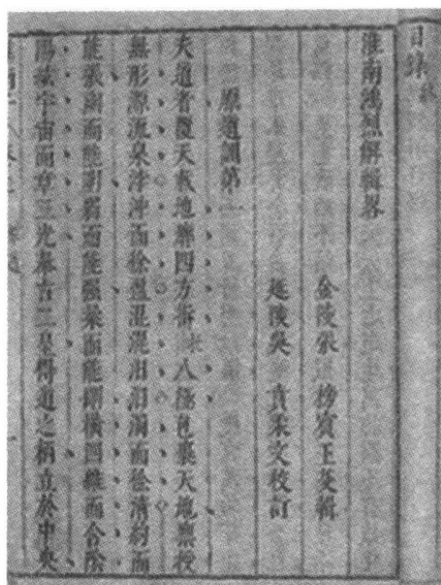 目錄終
淮南鴻烈解輯畧
金陵張榜賓王父輯
延陵吳賁柔文校訂
原道訓第一
夫道者覆天載地廓四方柝八極包裹天地稟授
無形源流泉浡沖而徐盈混混汩汩濁而徐清約而
能張幽而能明弱而能强柔而能剛橫四維而含陰
陽紘宇宙而章三光泰古二皇得道之柄立於中央